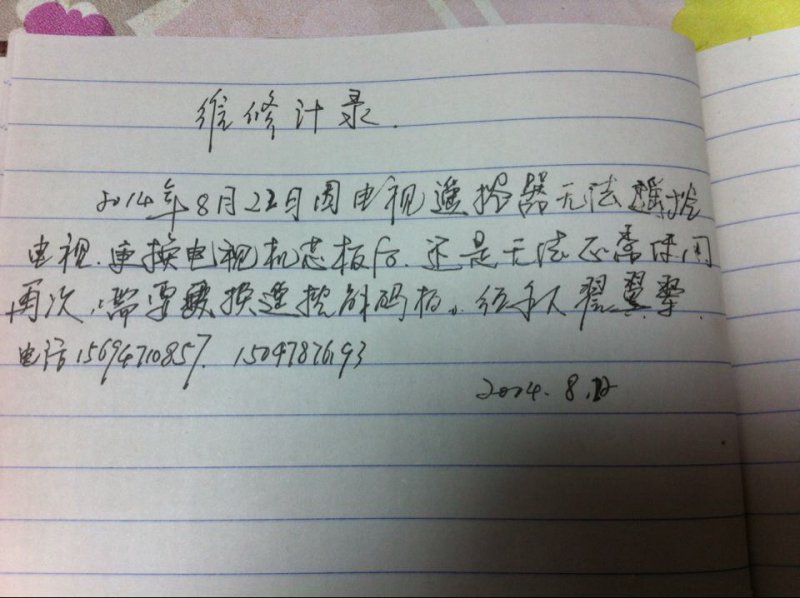 维修计录.
2014年8月22日因电视遥控器无法遥控
电视.更换电视机芯板后.还是无法正常使用
再次,需要换遥控解码板。经手人翟
电话15694710857. 15047876193
2014.8.